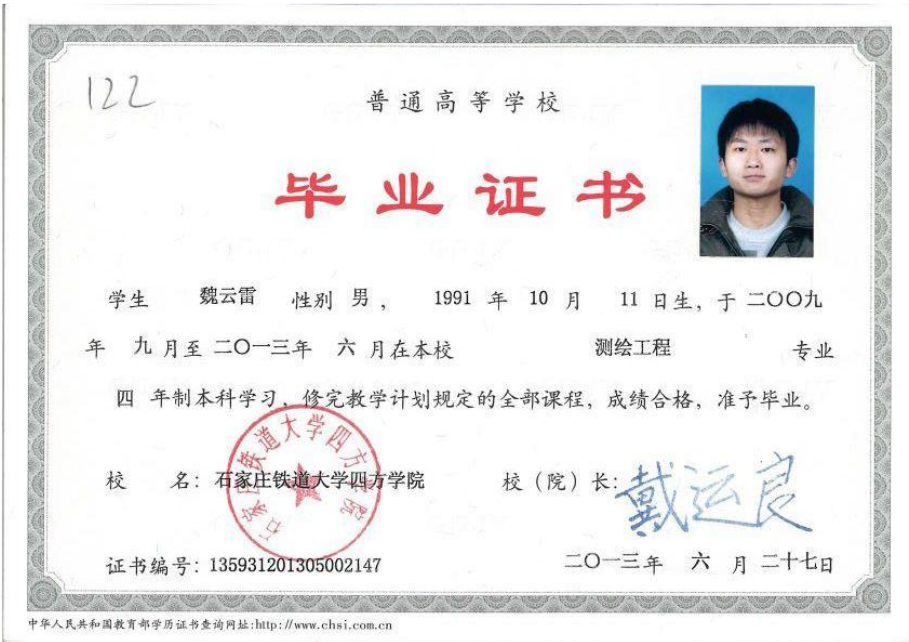 122
普通高等学校
毕业证书
学生 魏云雷 性别 男, 1991 年 10 月 11 日生, 于 二〇〇九
年 九 月至 二〇一三年 六 月在本校 测绘工程 专业
四 年制本科学习, 修完教学计划规定的全部课程, 成绩合格, 准予毕业。
石家庄铁道大学四方学院
校 名: 石家庄铁道大学四方学院 校（院）长: 戴运良
证书编号: 135931201305002147 二〇一三年 六 月 二十七日
中华人民共和国教育部学历证书查询网址:http://www.chsi.com.cn